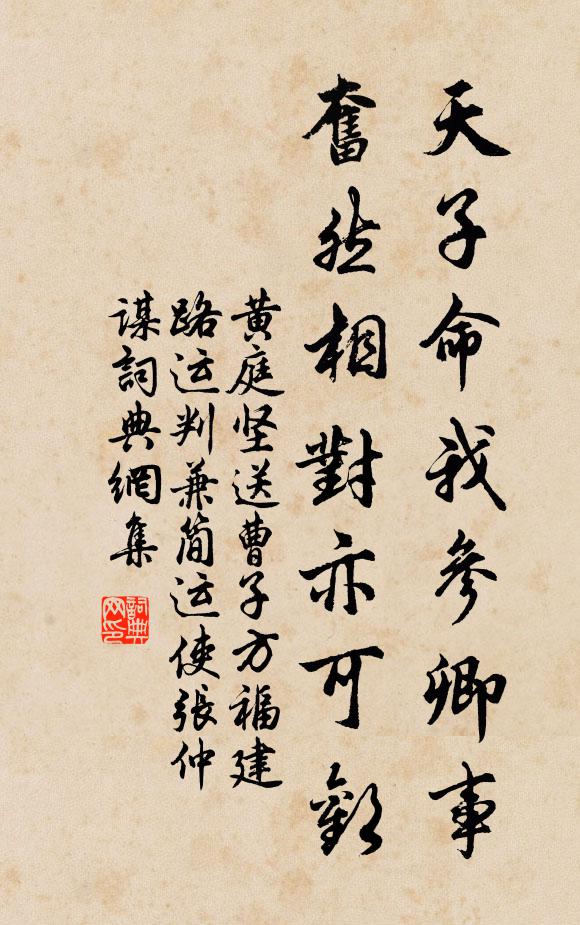 天子命我參卿事
奮然相對亦可歡
黄庭坚送曹子方福建
路运判兼简运使張仲
謀詞典網集
詞典
网印